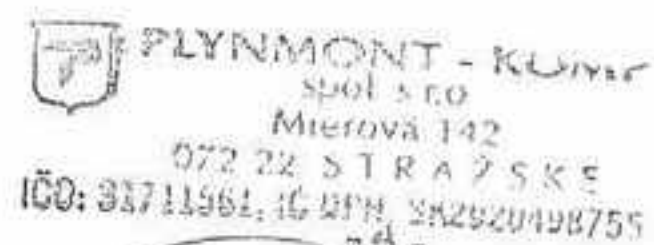 PLYNMONT - KUČMA
spol s r.o
Mierová 142
072 22 STRAŽSKE
IČO: 31711961, IČ DPH, SK2020498755